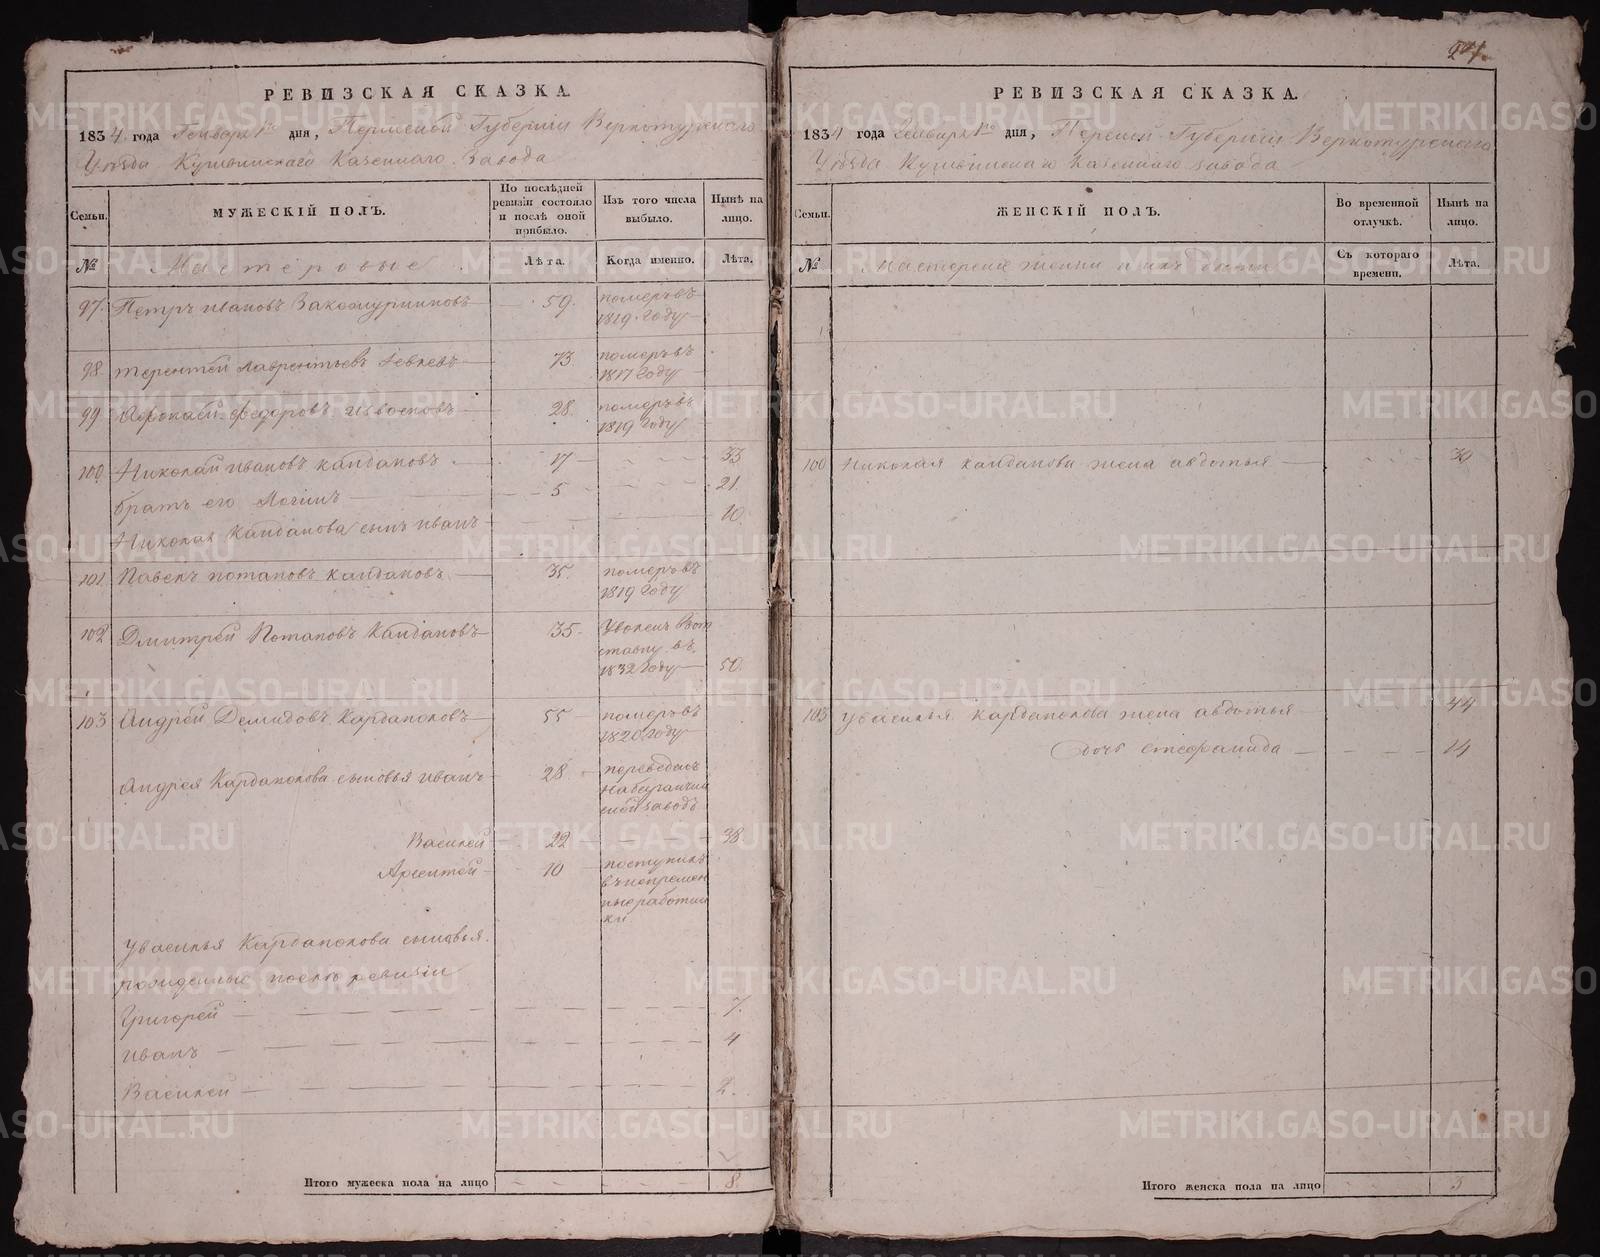 РЕВИЗСКАЯ СКАЗКА.
1834. года Генваря 1го дня, Пермской Губернiи Верхотурскаго
Уѣзда Кушвинскаго Казеннаго Завода
Семьи.
МУЖЕСКIЙ ПОЛЪ.
По послѣдней ревизiи состояло и послѣ оной прибыло.
Изъ того числа выбыло.
Нынѣ на лицо.
№
Мастеровые
Лѣта.
Когда именно.
Лѣта.
97. Петръ Ивановъ 59. померъ въ
1819. Году
98 Терентей Лаврентьевъ 73 померъ въ
1817 Году
99 Федоровъ 28. померъ въ
1819 Году
100 Николай Ивановъ Кайдаловъ 17 33
братъ его Логинъ 5 21
Николая Кайдалова сынъ Иванъ 10
101 Павелъ Потаповъ Кайдаловъ 35. померъ въ
1819 Году
102 Дмитрей Потаповъ Кайдаловъ 35. Уволенъ в от
ставку въ
1832 Году 50.
103 Андрей Демидовъ Кардаполовъ 55 померъ въ
1820 Году
Андрея Кардаполова сыновья Иванъ 28 переведенъ
на Баранчин
ской заводъ
Василей 22 38
10 поступилъ
въ непремен
ные работни
ки.
У Василья Кардаполова сыновья
рожденные послѣ ревизiи
Григорей 7.
Иванъ 4
Василей 2.
Итого мужеска пола на лицо 8.
24.
РЕВИЗСКАЯ СКАЗКА.
1834 года Генваря 1го дня, Пермской Губернiи Верхотурскаго
Уѣзда Кушвинскаго Казеннаго Завода
Семьи.
ЖЕНСКIЙ ПОЛЪ.
Во временной отлучкѣ.
Нынѣ на лицо.
№
Мастерскiе женки и ихъ дѣти
Съ котораго времени.
Лѣта.
100 Николая Кайдалова жена Авдотья 30
103 У Василья Кардаполова жена Авдотья 44
дочь Стефанида 14
Итого женска пола на лицо 3
METRIKI.GASO-URAL.RU